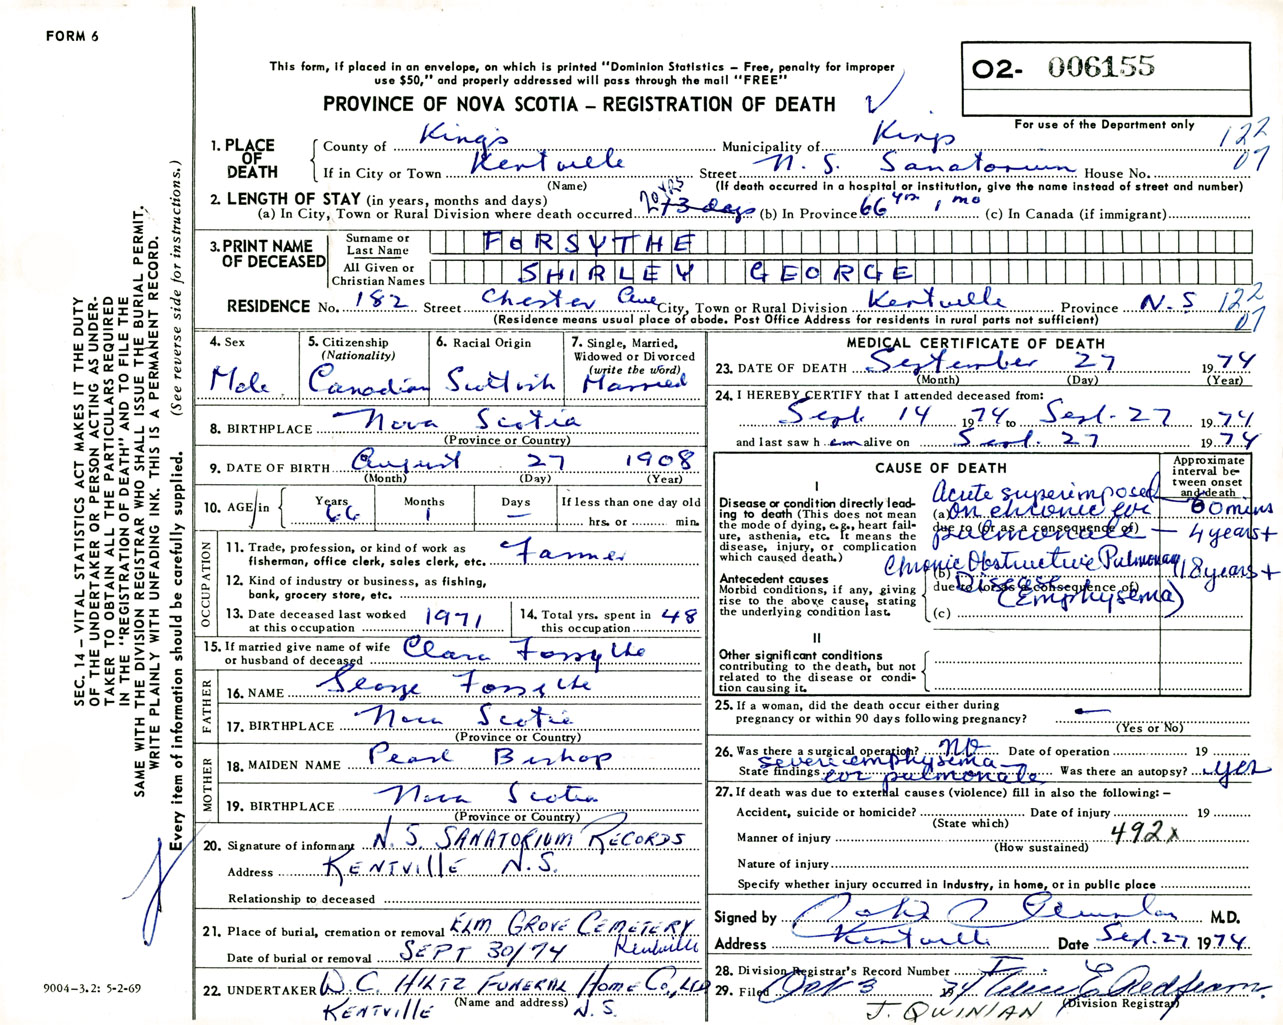 FORM 6
This form, if placed in an envelope, on which is printed "Dominion Statistics – Free, penalty for improper
use $50," and properly addressed will pass through the mail "FREE"
PROVINCE OF NOVA SCOTIA – REGISTRATION OF DEATH
O2- 006155
For use of the Department only
122
07
1. PLACE OF DEATH
County of King's Municipality of Kings
If in City or Town Kentville Street N. S. Sanatorium House No.
(Name) (If death occurred in a hospital or institution, give the name instead of street and number)
2. LENGTH OF STAY (in years, months and days)
(a) In City, Town or Rural Division where death occurred 20 yrs 13 days (b) In Province 66 yrs 1 mo (c) In Canada (if immigrant)
3. PRINT NAME OF DECEASED
Surname or Last Name FORSYTHE
All Given or Christian Names SHIRLEY GEORGE
RESIDENCE No. 182 Street Chester Ave City, Town or Rural Division Kentville Province N.S 122
07
(Residence means usual place of abode. Post Office Address for residents in rural parts not sufficient)
4. Sex Male
5. Citizenship (Nationality) Canadian
6. Racial Origin Scottish
7. Single, Married, Widowed or Divorced (write the word) Married
8. BIRTHPLACE Nova Scotia
(Province or Country)
9. DATE OF BIRTH August 27 1908
(Month) (Day) (Year)
10. AGE in Years 66 Months 1 Days – If less than one day old hrs. or min.
OCCUPATION
11. Trade, profession, or kind of work as fisherman, office clerk, sales clerk, etc. Farmer
12. Kind of industry or business, as fishing, bank, grocery store, etc.
13. Date deceased last worked at this occupation 1971
14. Total yrs. spent in this occupation 48
15. If married give name of wife or husband of deceased Clara Forsythe
FATHER
16. NAME George Forsythe
17. BIRTHPLACE Nova Scotia
(Province or Country)
MOTHER
18. MAIDEN NAME Pearl Bishop
19. BIRTHPLACE Nova Scotia
(Province or Country)
20. Signature of informant N. S. SANATORIUM RECORDS
Address KENTVILLE N.S.
Relationship to deceased
21. Place of burial, cremation or removal ELM GROVE CEMETERY
Kentville
Date of burial or removal SEPT 30/74
22. UNDERTAKER W.C. HILTZ FUNERAL HOME CO., LTD
(Name and address)
KENTVILLE N.S.
MEDICAL CERTIFICATE OF DEATH
23. DATE OF DEATH September 27 1974
(Month) (Day) (Year)
24. I HEREBY CERTIFY that I attended deceased from:
Sept 14 1974 to Sept. 27 1974
and last saw him alive on Sept. 27 1974
CAUSE OF DEATH
Approximate interval between onset and death
I
Disease or condition directly leading to death (This does not mean the mode of dying, e.g., heart failure, asthenia, etc. It means the disease, injury, or complication which caused death.)
(a) Acute superimposed on chronic cor pulmonale 60 mins
– 4 years+
due to (or as a consequence of)
Antecedent causes
Morbid conditions, if any, giving rise to the above cause, stating the underlying condition last.
(b) Chronic Obstructive Pulmonary Disease (Emphysema) 18 years+
due to (or as a consequence of)
(c)
II
Other significant conditions
contributing to the death, but not related to the disease or condition causing it.
25. If a woman, did the death occur either during pregnancy or within 90 days following pregnancy? –
(Yes or No)
26. Was there a surgical operation? No Date of operation 19
State findings severe emphysema cor pulmonale Was there an autopsy? yes
27. If death was due to external causes (violence) fill in also the following: –
Accident, suicide or homicide? Date of injury 19
(State which)
Manner of injury 492x
(How sustained)
Nature of injury
Specify whether injury occurred in Industry, in home, or in public place
Signed by M.D.
Address Kentville Date Sept. 27 1974
28. Division Registrar's Record Number
29. Filed Oct 3 1974
(Division Registrar)
J. QUINIAN
SEC. 14 – VITAL STATISTICS ACT MAKES IT THE DUTY
OF THE UNDERTAKER OR PERSON ACTING AS UNDER-
TAKER TO OBTAIN ALL THE PARTICULARS REQUIRED
IN THE "REGISTRATION OF DEATH" AND TO FILE THE
SAME WITH THE DIVISION REGISTRAR WHO SHALL ISSUE THE BURIAL PERMIT.
WRITE PLAINLY WITH UNFADING INK. THIS IS A PERMANENT RECORD.
Every item of information should be carefully supplied. (See reverse side for instructions.)
9004-3.2: 5-2-69